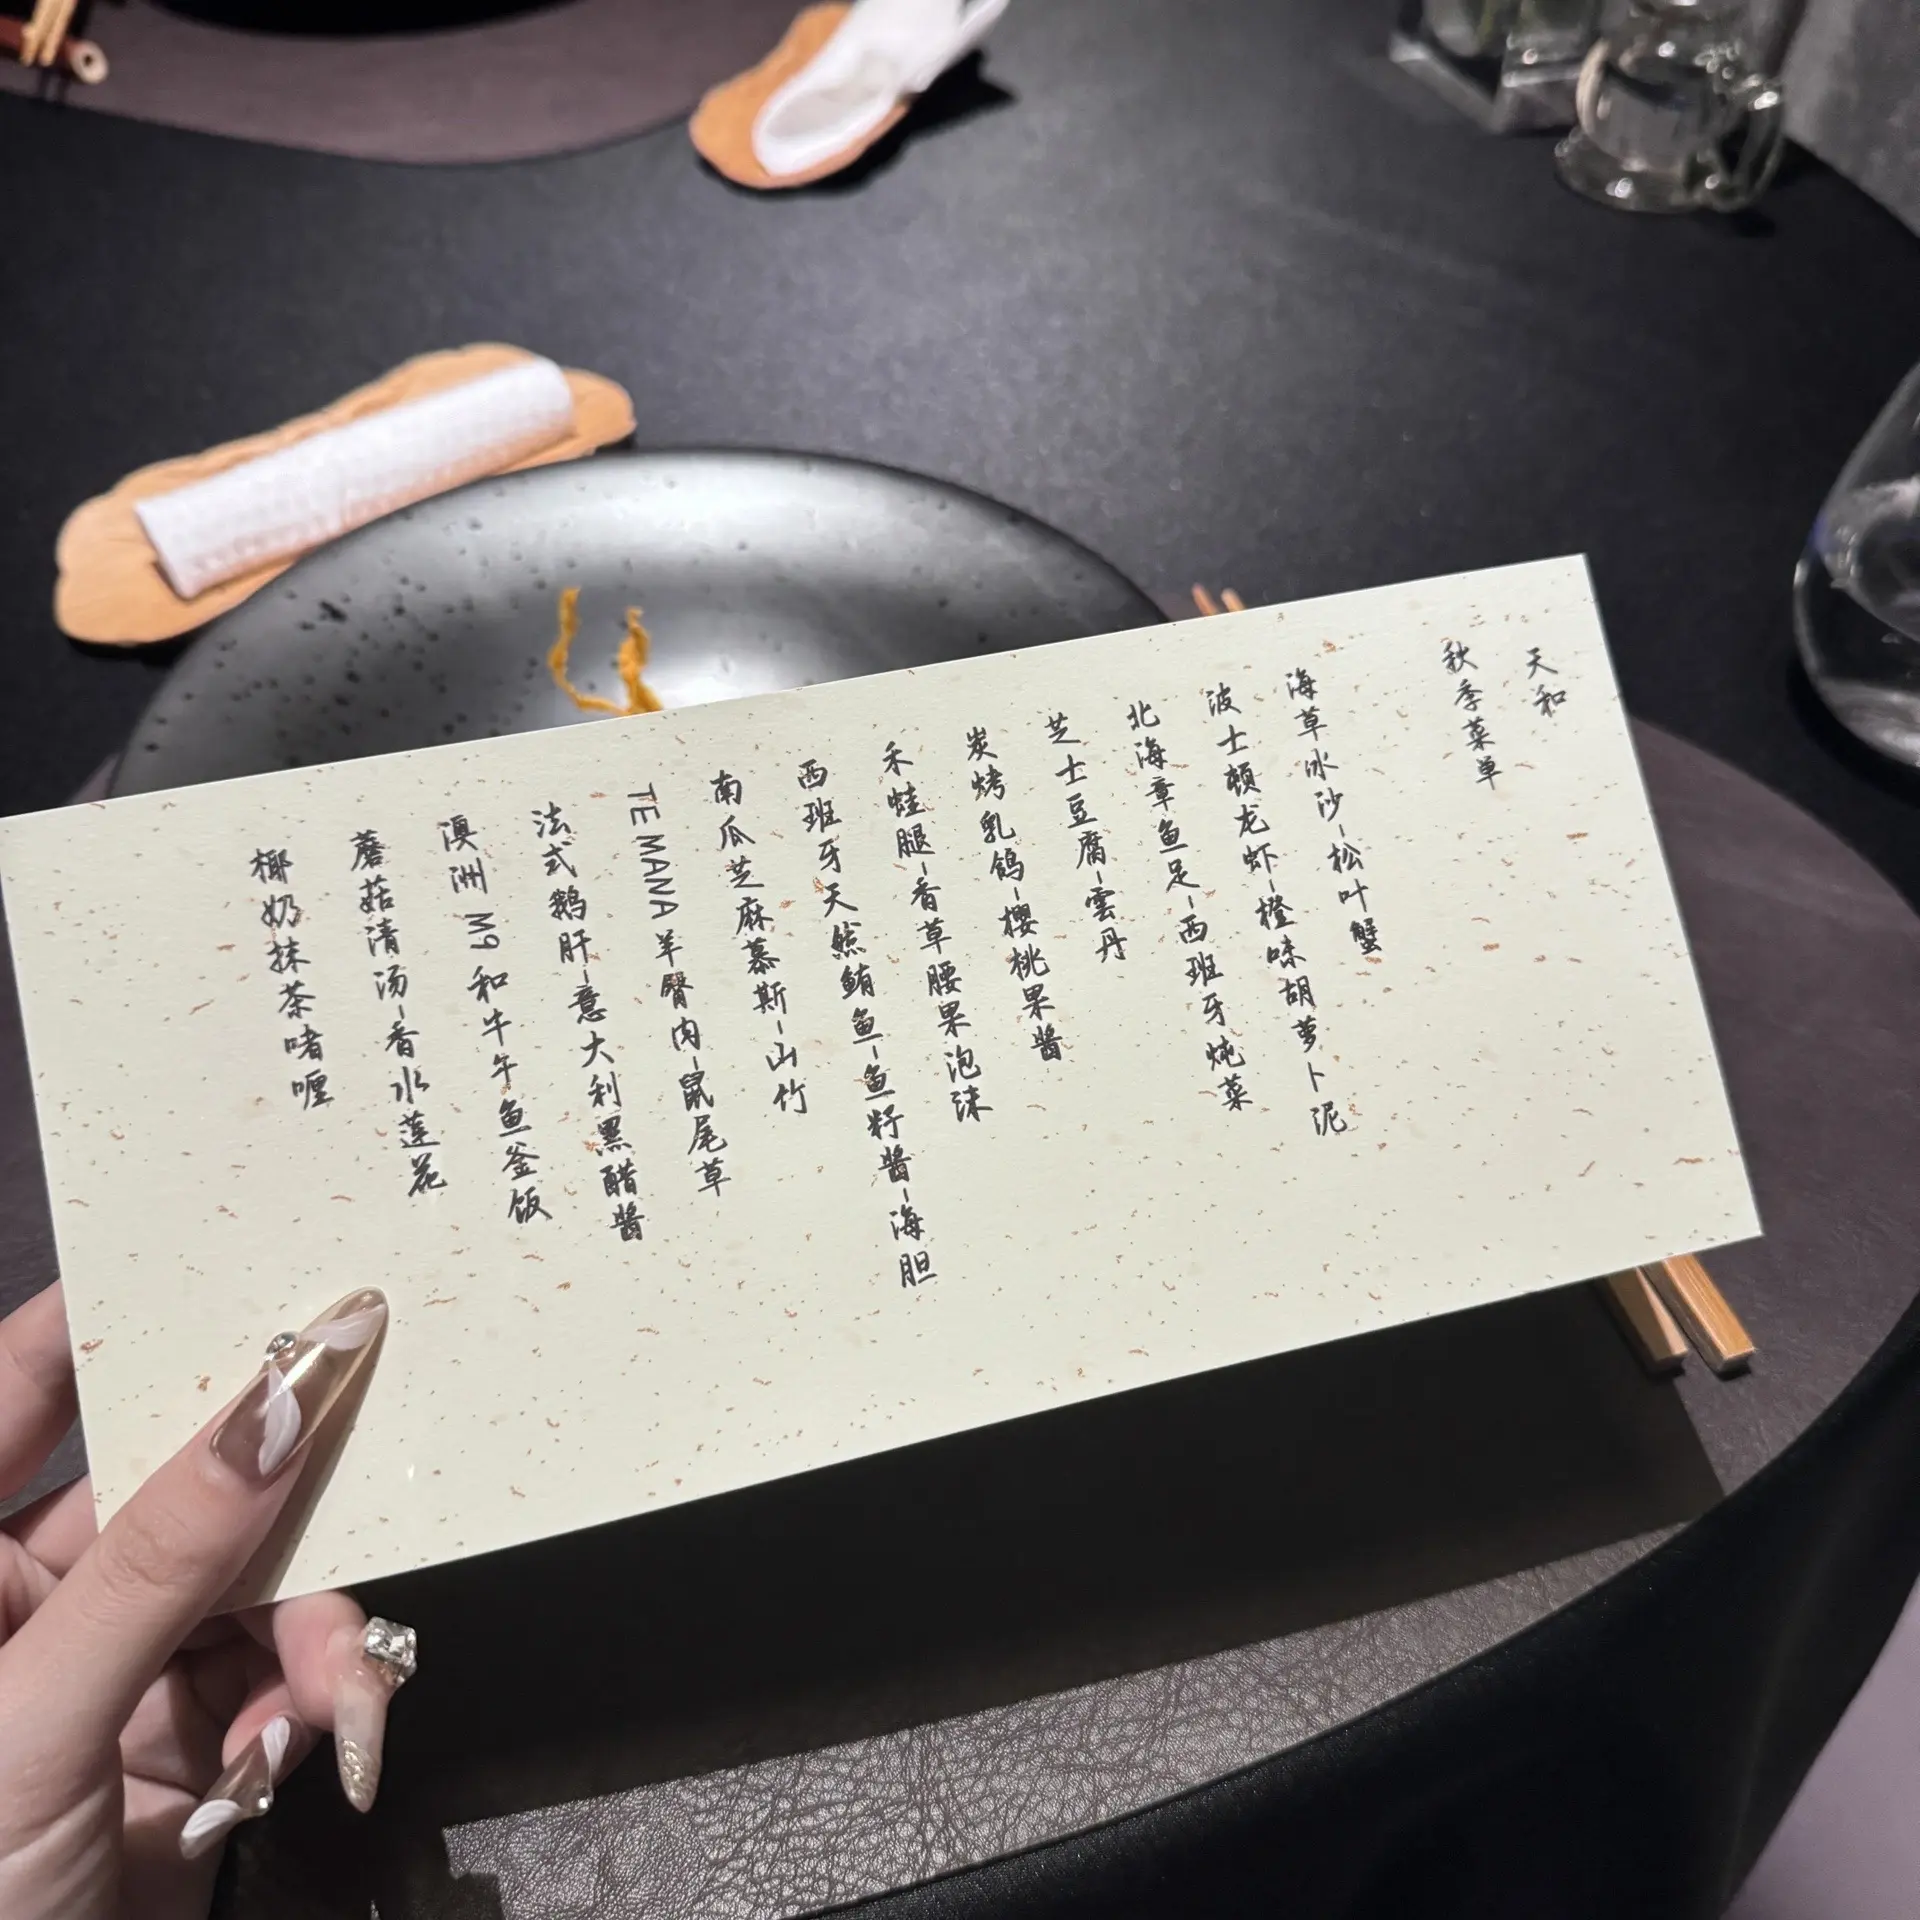 天和
秋季菜单
海草冰沙-松叶蟹
波士顿龙虾-橙味胡萝卜泥
北海章鱼足-西班牙炖菜
芝士豆腐-雲丹
炭烤乳鸽-樱桃果酱
禾蛙腿-香草腰果泡沫
西班牙天然鲔鱼-鱼籽酱-海胆
南瓜芝麻慕斯-山竹
TE MANA羊臀肉-鼠尾草
法式鹅肝-意大利黑醋酱
澳洲M9和牛午鱼釜饭
蘑菇清汤-香水莲花
椰奶抹茶啫喱